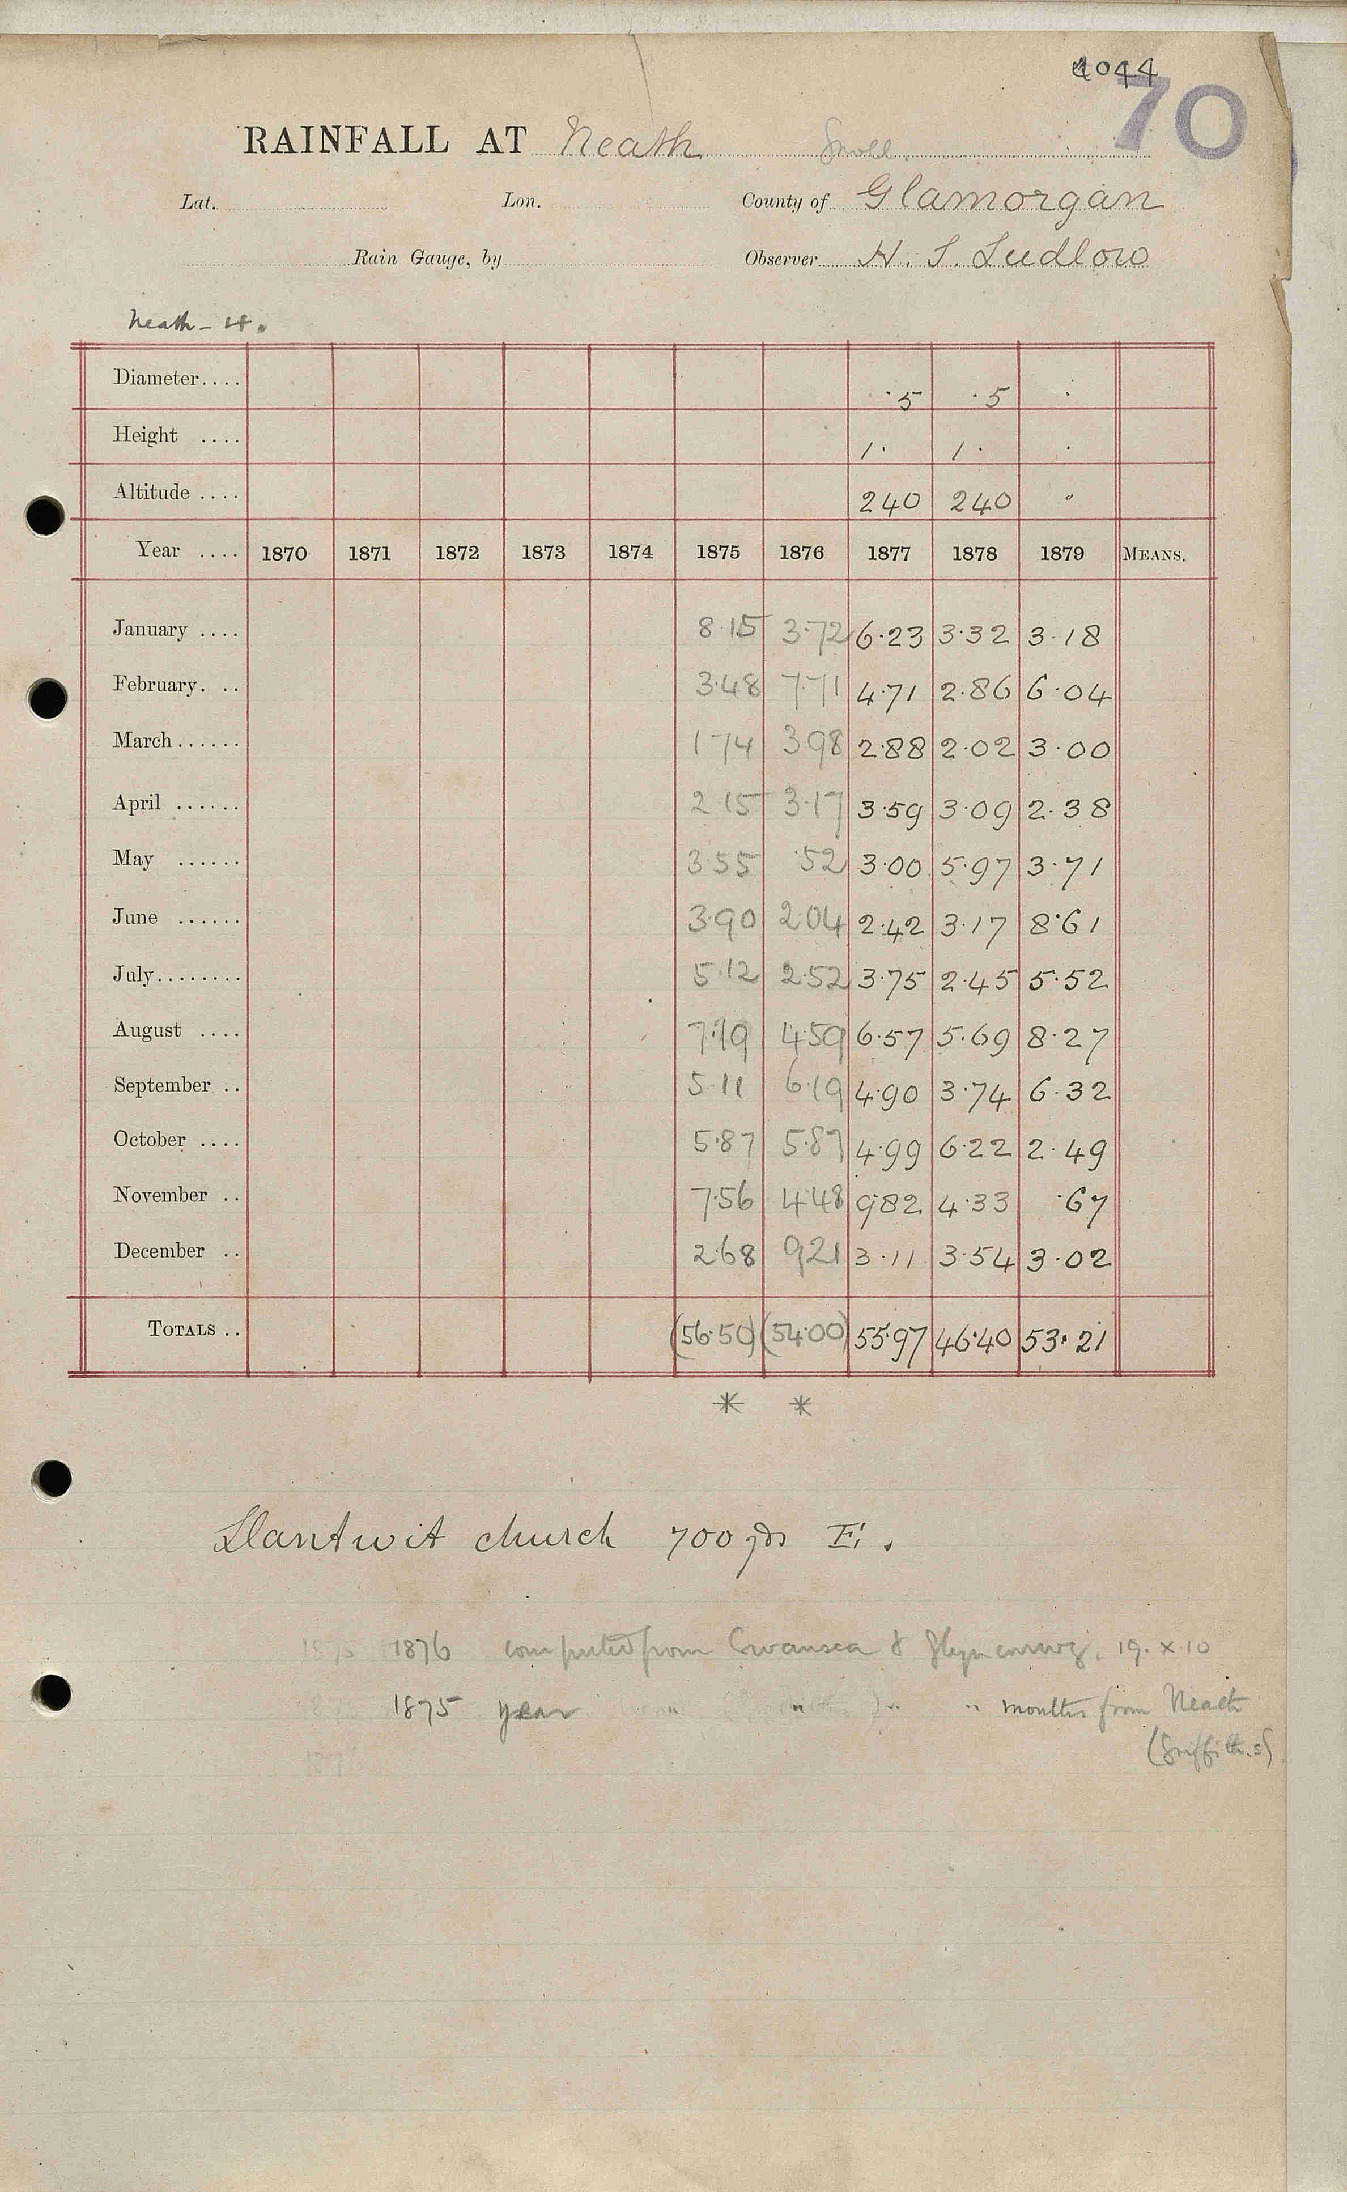 4044
70
RAINFALL AT Neath Gnoll
Lat. Lon. County of Glamorgan
Rain Gauge, by Observer H. S. Ludlow
Neath - H.
Diameter.... ·5 ·5 ·
Height .... 1· 1· ·
Altitude .... 240 240 ·
Year .... 1870 1871 1872 1873 1874 1875 1876 1877 1878 1879 MEANS.
January .... 8·15 3·72 6·23 3·32 3·18
February. .. 3·48 7·71 4·71 2·86 6·04
March...... 1·74 3·98 2·88 2·02 3·00
April ...... 2·15 3·17 3·59 3·09 2·38
May ...... 3·55 ·52 3·00 5·97 3·71
June ...... 3·90 2·04 2·42 3·17 8·61
July........ 5·12 2·52 3·75 2·45 5·52
August .... 7·19 4·59 6·57 5·69 8·27
September .. 5·11 6·19 4·90 3·74 6·32
October .... 5·87 5·87 4·99 6·22 2·49
November .. 7·56 4·48 9·82 4·33 ·67
December .. 2·68 9·21 3·11 3·54 3·02
TOTALS .. (56·50) (54·00) 55·97 46·40 53·21
* *
Llantwit church 700 yds E.
1876 computed from Swansea & Glyncorrwg. 19. X. 10
1875 year " " " months from Neath
(Griffiths)